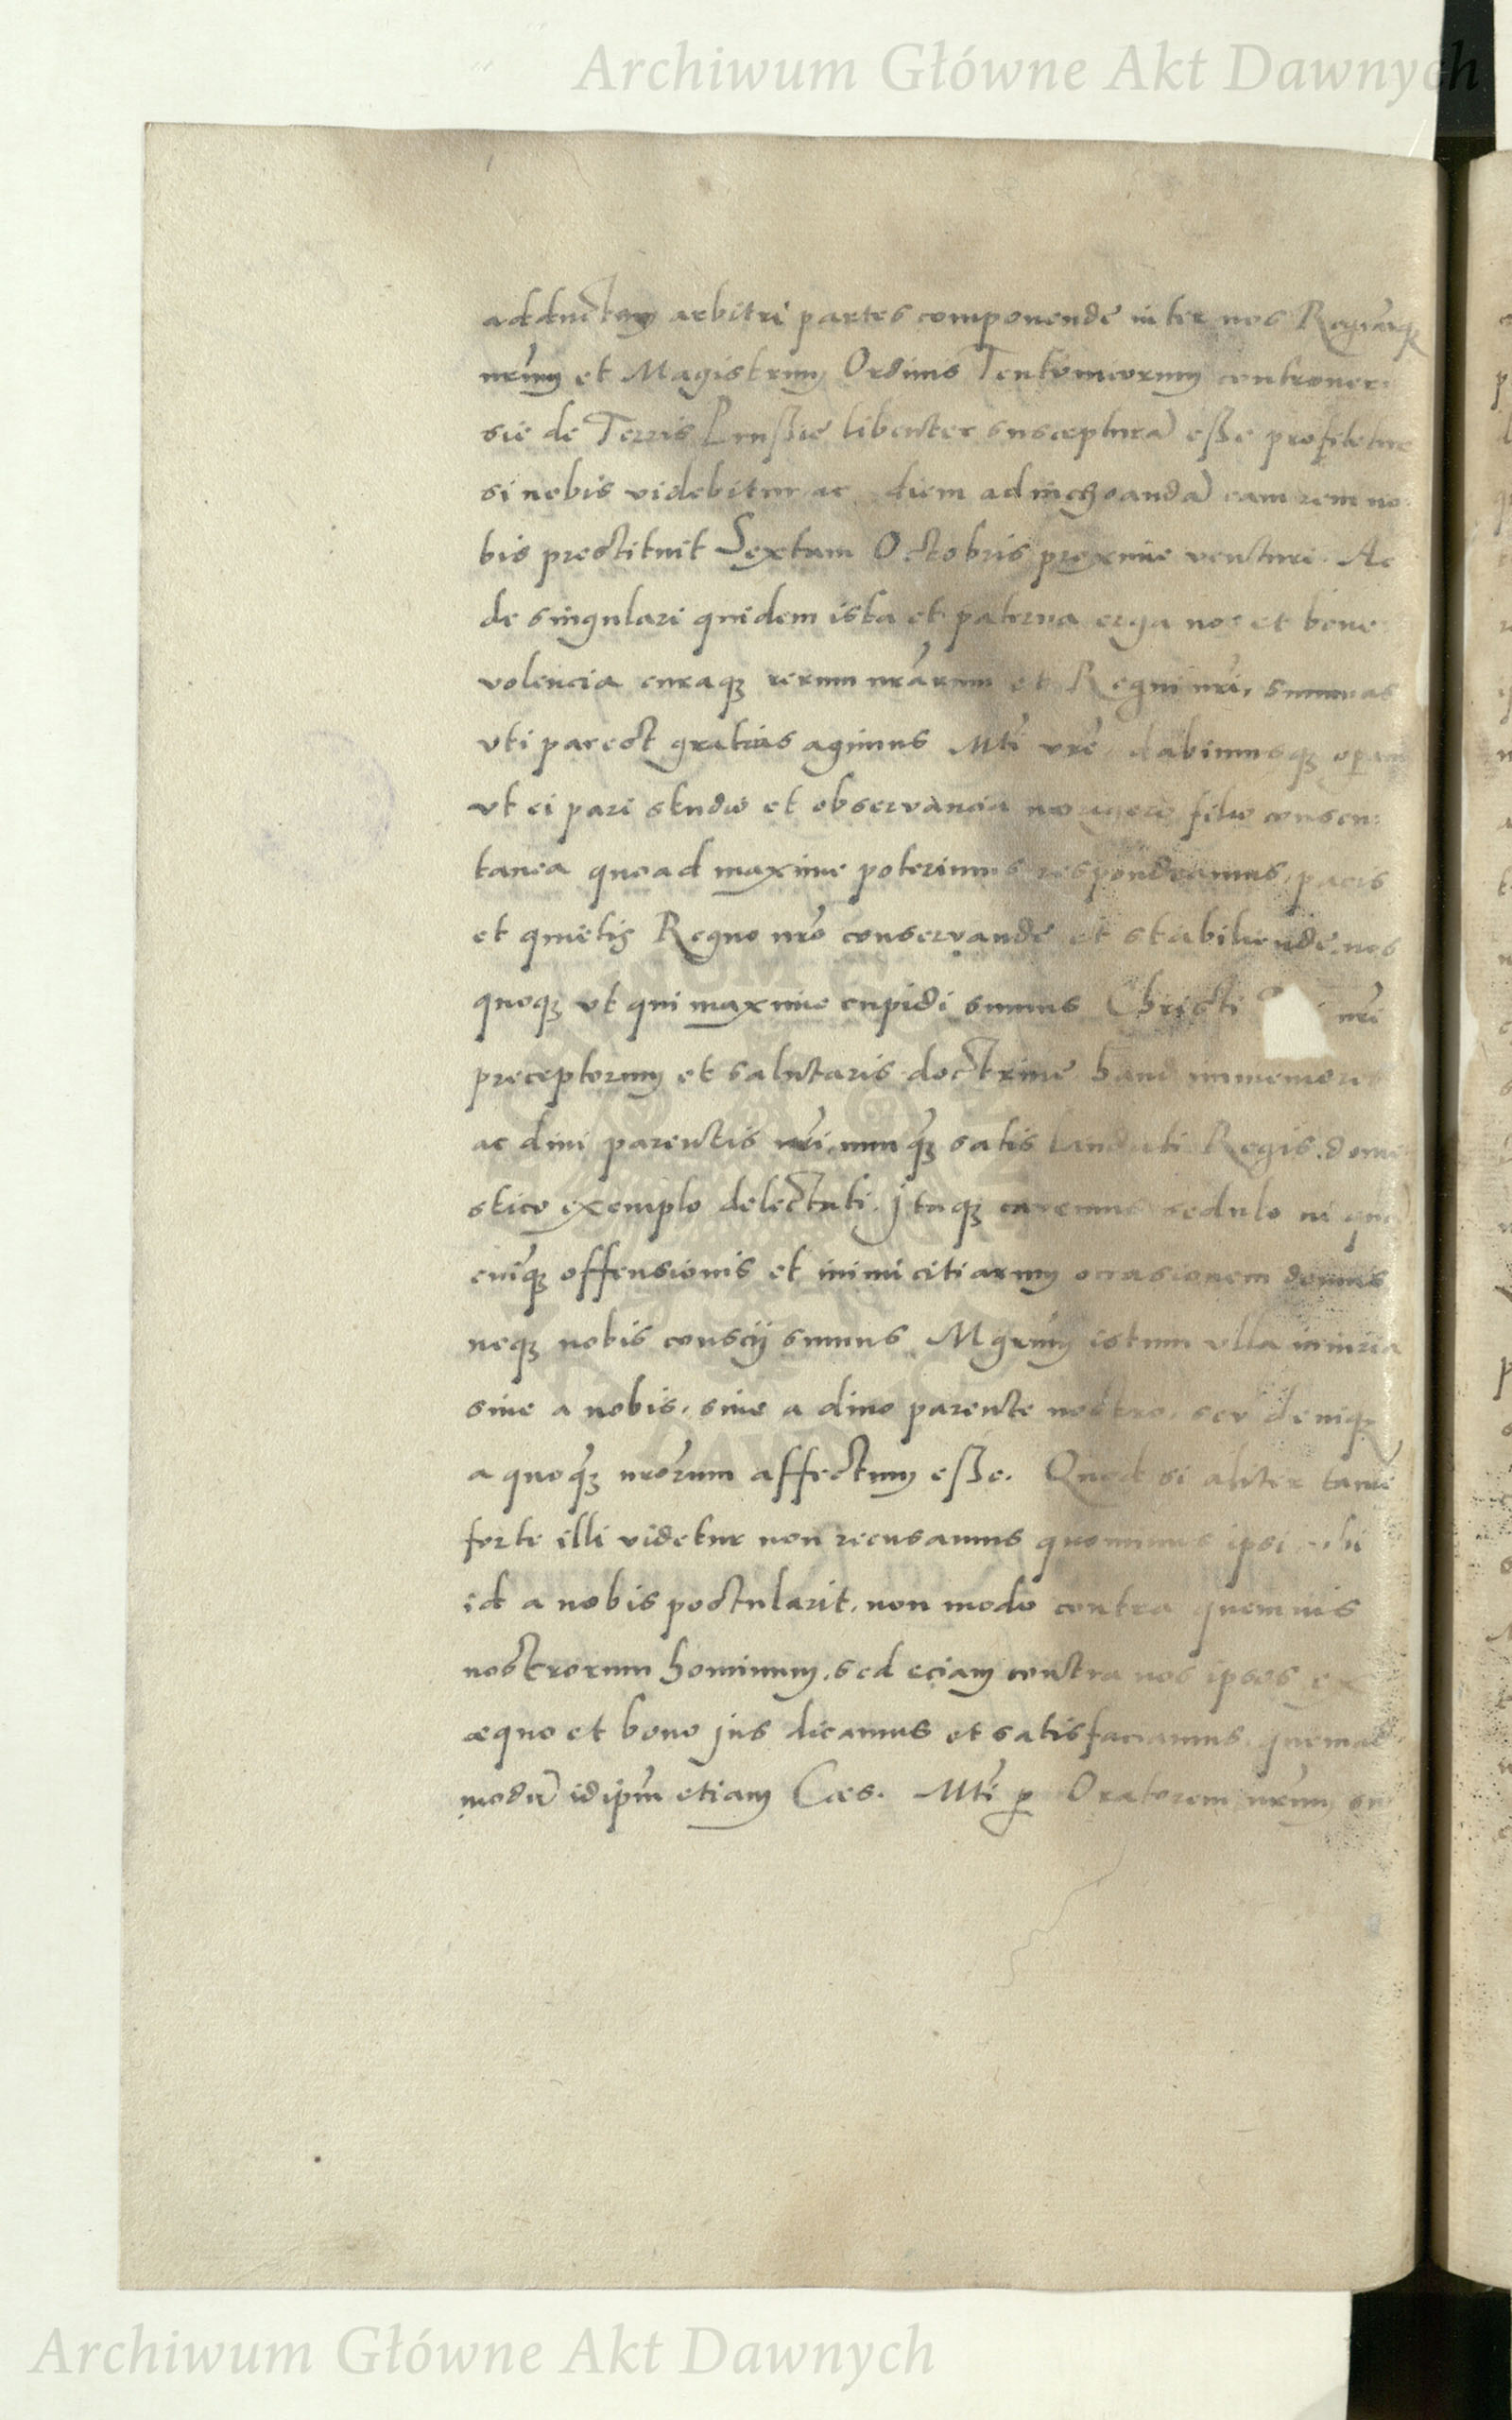 Archiwum Główne Akt Dawnych
adductam arbitri partes componende inter nos Regnumq;
nr̃um et Magistrum Ordinis Teutonicorum controuer-
sie de Terris Prussie libenter suscepturã esse profitetur
si nobis videbitur ac diem ad inchoandã eam rem no-
bis prestituit Sextam Octobris proxime venturi. Ac
de singulari quidem ista et paterna erga nos et bene-
volencia curaq; rerum nr̃arum et Regni nr̃i, summas
vti par est gratias agimus Mti vr̃e, dabimusq; operam
vt ei pari studio et observancia filio consen-
tanea quoad maxime poterimus respondeamus, pacis
et quietis Regno nr̃o conservande et stabiliende nos
quoq; vt qui maxime cupidi sumus Christi nr̃i
preceptorum et salutaris doctrine haud immemores
ac diui parentis nr̃i, nunq̃; satis laudati Regis dome-
stico exemplo delectati. Jtaq; caremus sedulo ni quã
cuiq̃; offensionis et inimicitiarum occasionem demus
neq; nobis conscij sumus Mgr̃um istum vlla iniuria
siue a nobis, siue a diuo parente nostro, seu deniq;
a quoq̃; nr̃orum affectum esse. Quod si aliter tamẽ
forte illi videtur non recusamus quominus ipsi vbi
id a nobis postularit, non modo contra quemuis
nostrorum hominum, sed eciam contra nos ipsos ex
æquo et bono jus dicamus et satisfaciamus, quemad-
modũ id ip̃m etiam Cæs. Mti p Oratorem nr̃um su
Archiwum Główne Akt Dawnych